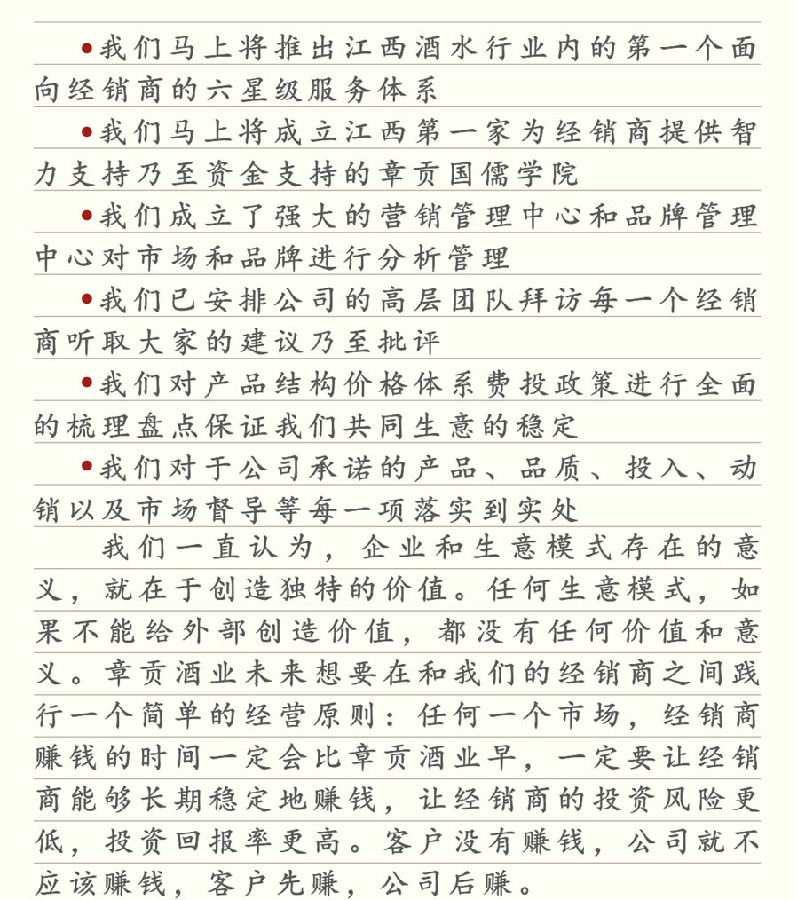 •我们马上将推出江西酒水行业内的第一个面
向经销商的六星级服务体系
•我们马上将成立江西第一家为经销商提供智
力支持乃至资金支持的章贡国儒学院
•我们成立了强大的营销管理中心和品牌管理
中心对市场和品牌进行分析管理
•我们已安排公司的高层团队拜访每一个经销
商听取大家的建议乃至批评
•我们对产品结构价格体系费投政策进行全面
的梳理盘点保证我们共同生意的稳定
•我们对于公司承诺的产品、品质、投入、动
销以及市场督导等每一项落实到实处
我们一直认为，企业和生意模式存在的意
义，就在于创造独特的价值。任何生意模式，如
果不能给外部创造价值，都没有任何价值和意
义。章贡酒业未来想要在和我们的经销商之间践
行一个简单的经营原则：任何一个市场，经销商
赚钱的时间一定会比章贡酒业早，一定要让经销
商能够长期稳定地赚钱，让经销商的投资风险更
低，投资回报率更高。客户没有赚钱，公司就不
应该赚钱，客户先赚，公司后赚。